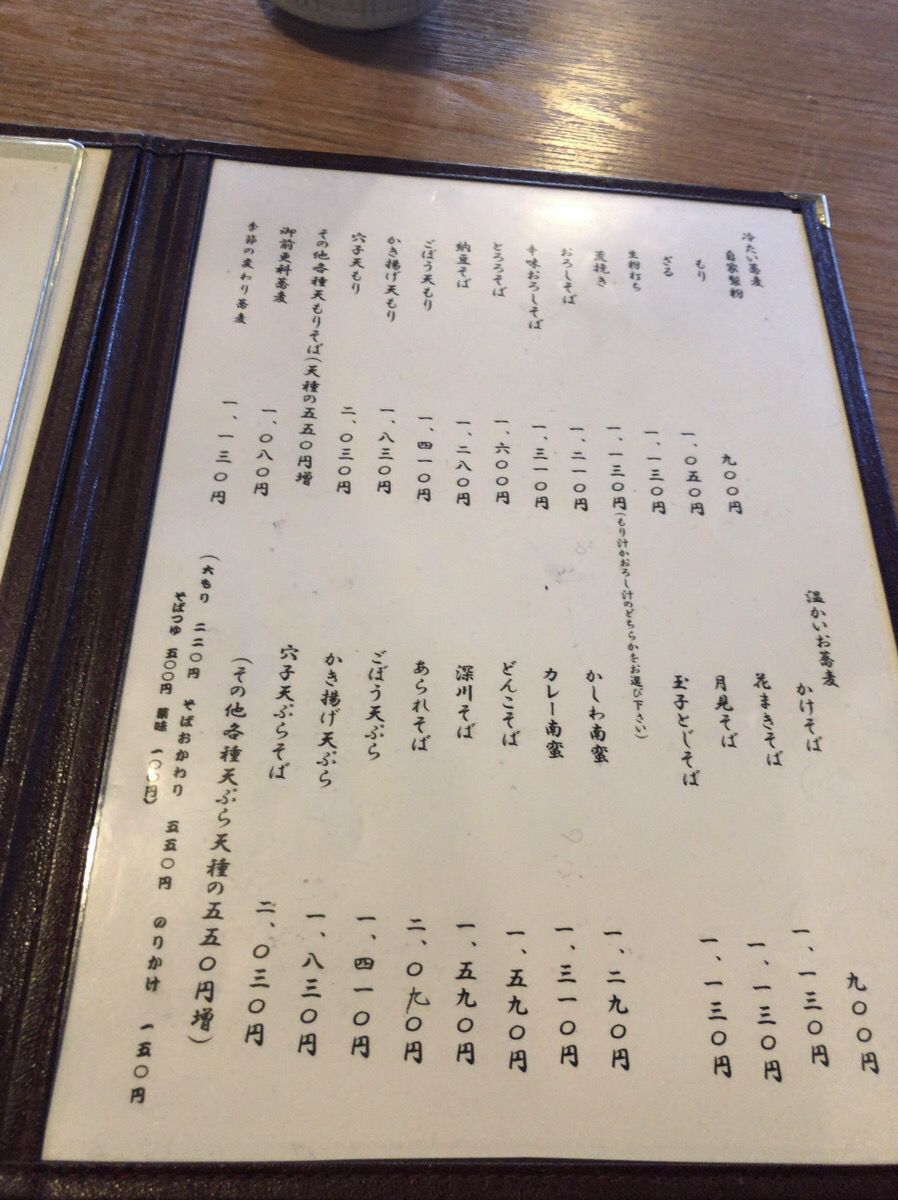 冷たい蕎麦
自家製粉
もり 九〇〇円
ざる 一、〇五〇円
生粉打ち 一、一三〇円
荒挽き 一、一三〇円(もり汁かおろし汁のどちらかをお選び下さい)
おろしそば 一、二一〇円
辛味おろしそば 一、三一〇円
とろろそば 一、六〇〇円
納豆そば 一、二八〇円
ごぼう天もり 一、四一〇円
かき揚げ天もり 一、八三〇円
穴子天もり 二、〇三〇円
その他各種天もりそば(天種の五五〇円増
御前更科蕎麦 一、〇八〇円
季節の変わり蕎麦 一、一三〇円
温かいお蕎麦
かけそば 九〇〇円
花まきそば 一、一三〇円
月見そば 一、一三〇円
玉子とじそば 一、一三〇円
かしわ南蛮 一、二九〇円
カレー南蛮 一、三一〇円
どんこそば 一、五九〇円
深川そば 一、五九〇円
あられそば 二、〇九〇円
ごぼう天ぷら 一、四一〇円
かき揚げ天ぷら 一、八三〇円
穴子天ぷらそば 二、〇三〇円
(その他各種天ぷら天種の五五〇円増)
(大もり 二二〇円 そばおかわり 五五〇円 のりかけ 一五〇円
そばつゆ 五〇〇円 薬味 一〇〇円)